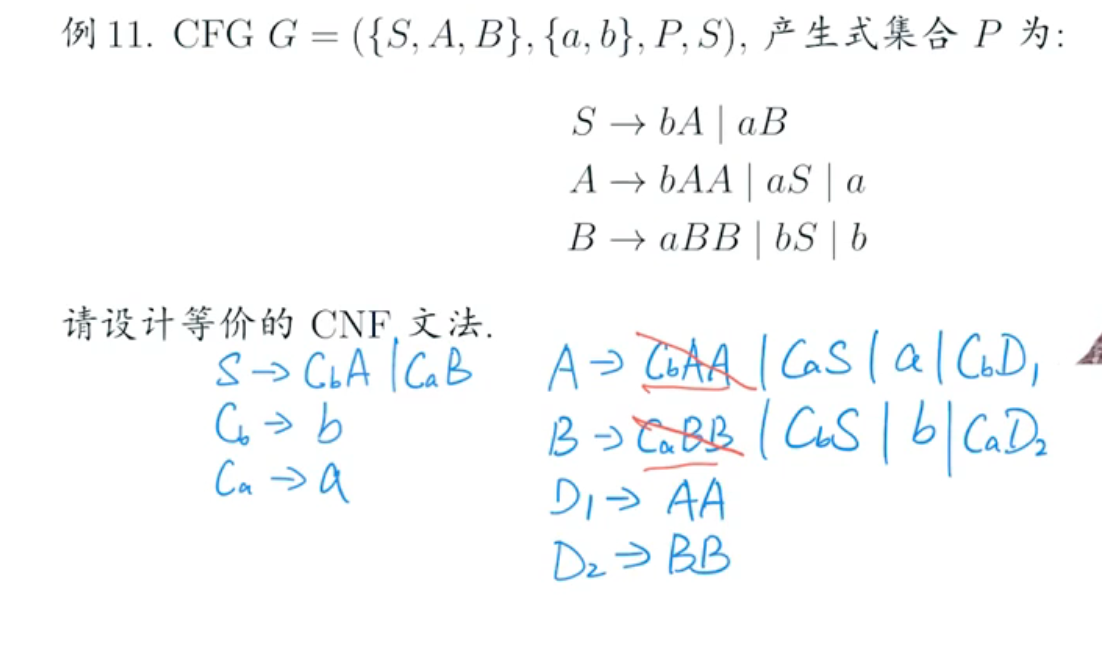 例 11. CFG G = ({S, A, B}, {a, b}, P, S), 产生式集合 P 为:
S → bA | aB
A → bAA | aS | a
B → aBB | bS | b
请设计等价的 CNF 文法.
S → CbA | CaB
Cb → b
Ca → a
A → CbAA | CaS | a | CbD1
B → CaBB | CbS | b | CaD2
D1 → AA
D2 → BB